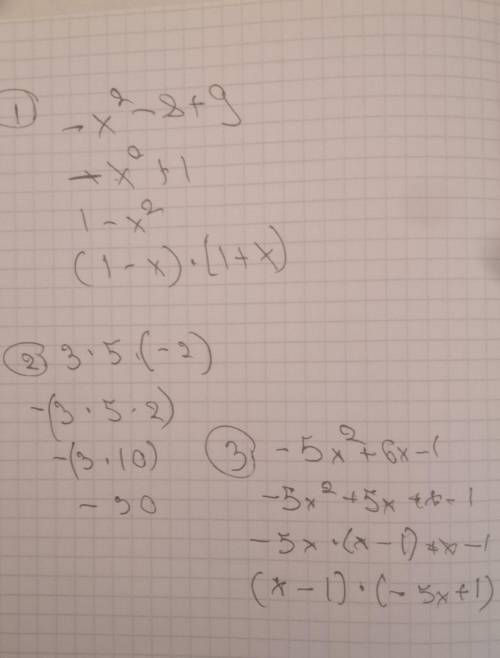 ① -x² - 8 + 9
-x² + 1
1 - x²
(1 - x) · (1 + x)
② 3 · 5 · (-2)
-(3 · 5 · 2)
-(3 · 10)
-30
③ -5x² + 6x - 1
-5x² + 5x + x - 1
-5x · (x - 1) + x - 1
(x - 1) · (-5x + 1)